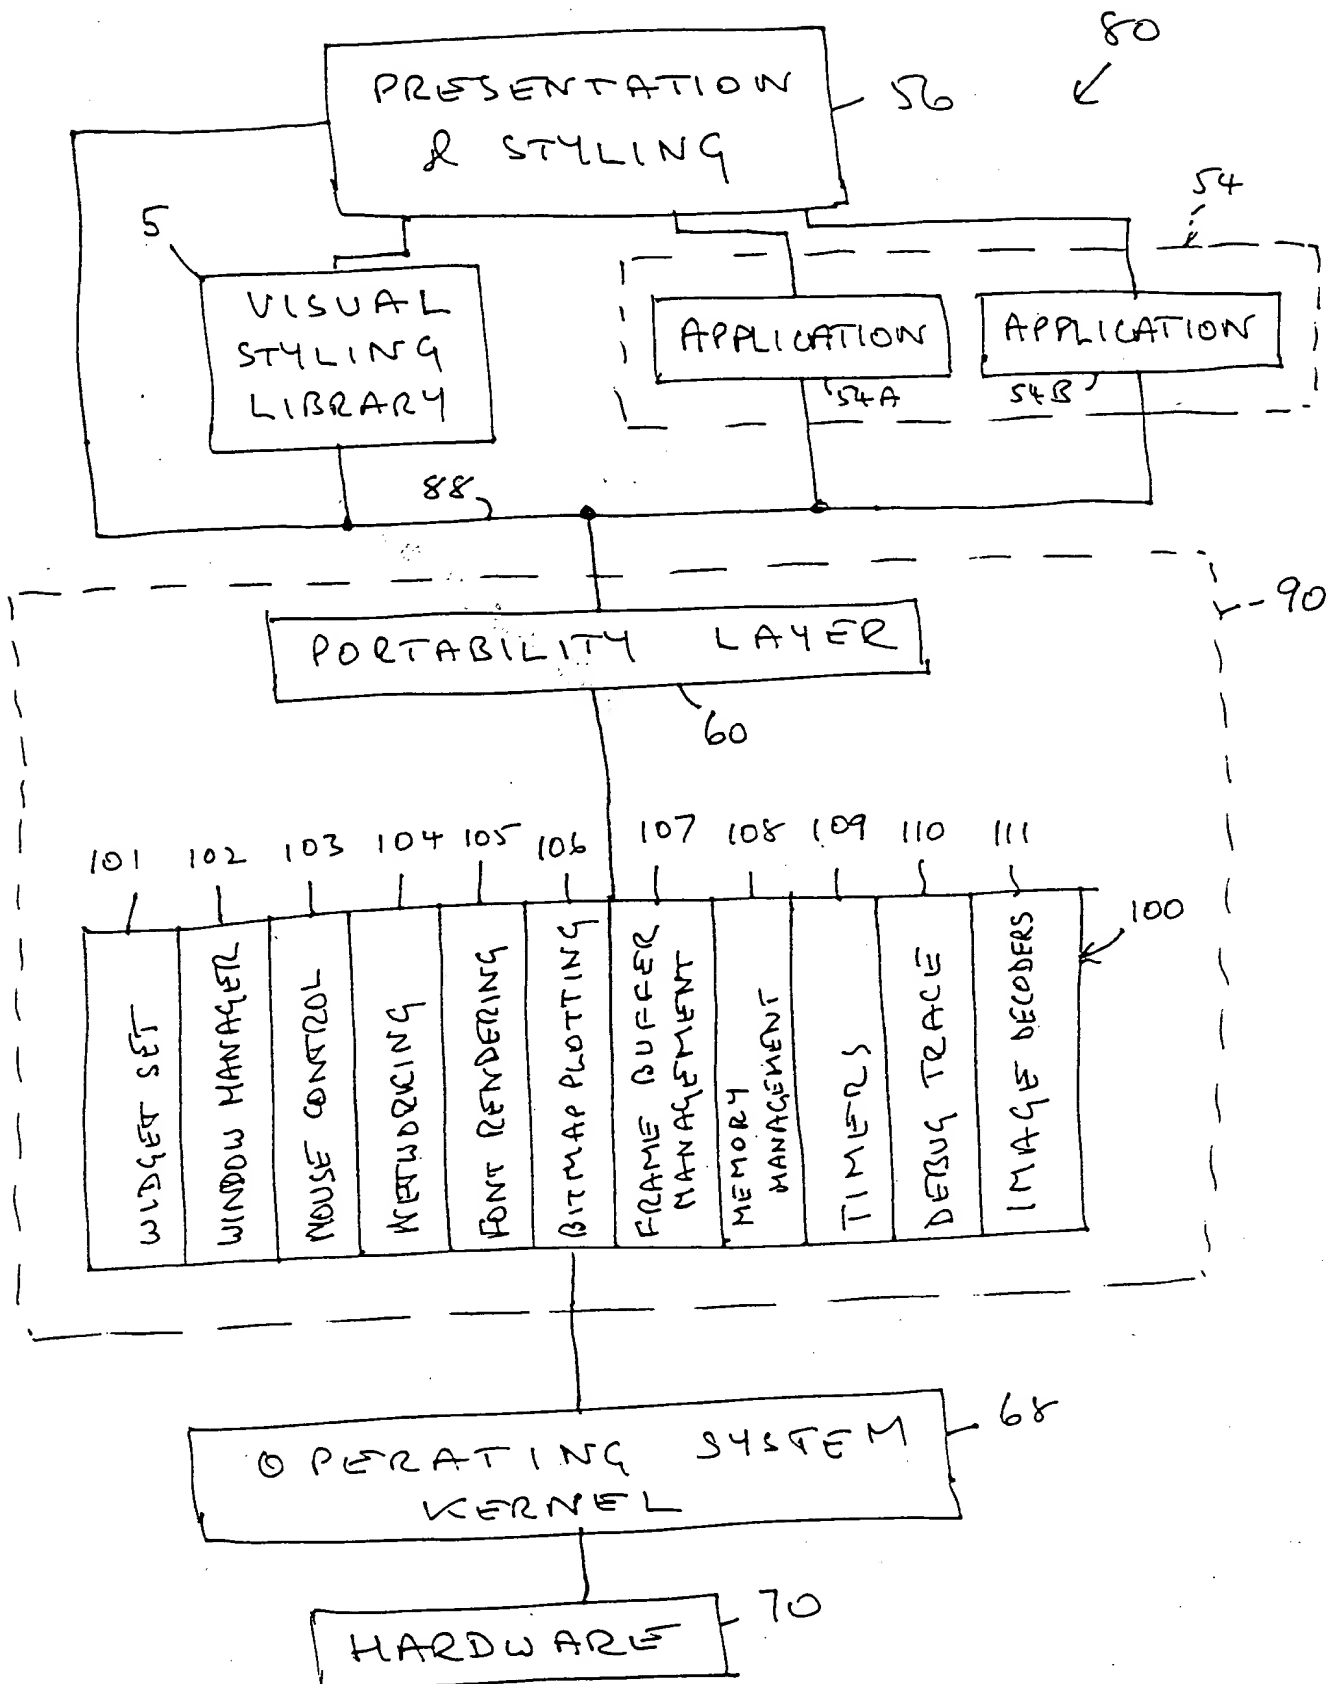 80
PRESENTATION
& STYLING
56
54
5
VISUAL
STYLING
LIBRARY
APPLICATION
54A
APPLICATION
54B
88
90
PORTABILITY LAYER
60
101
102
103
104
105
106
107
108
109
110
111
100
WIDGET SET
WINDOW MANAGER
MOUSE CONTROL
NETWORKING
FONT RENDERING
BITMAP PLOTTING
FRAME BUFFER
MANAGEMENT
MEMORY
MANAGEMENT
TIMERS
DEBUG TRACE
IMAGE DECODERS
OPERATING SYSTEM
KERNEL
68
HARDWARE
70